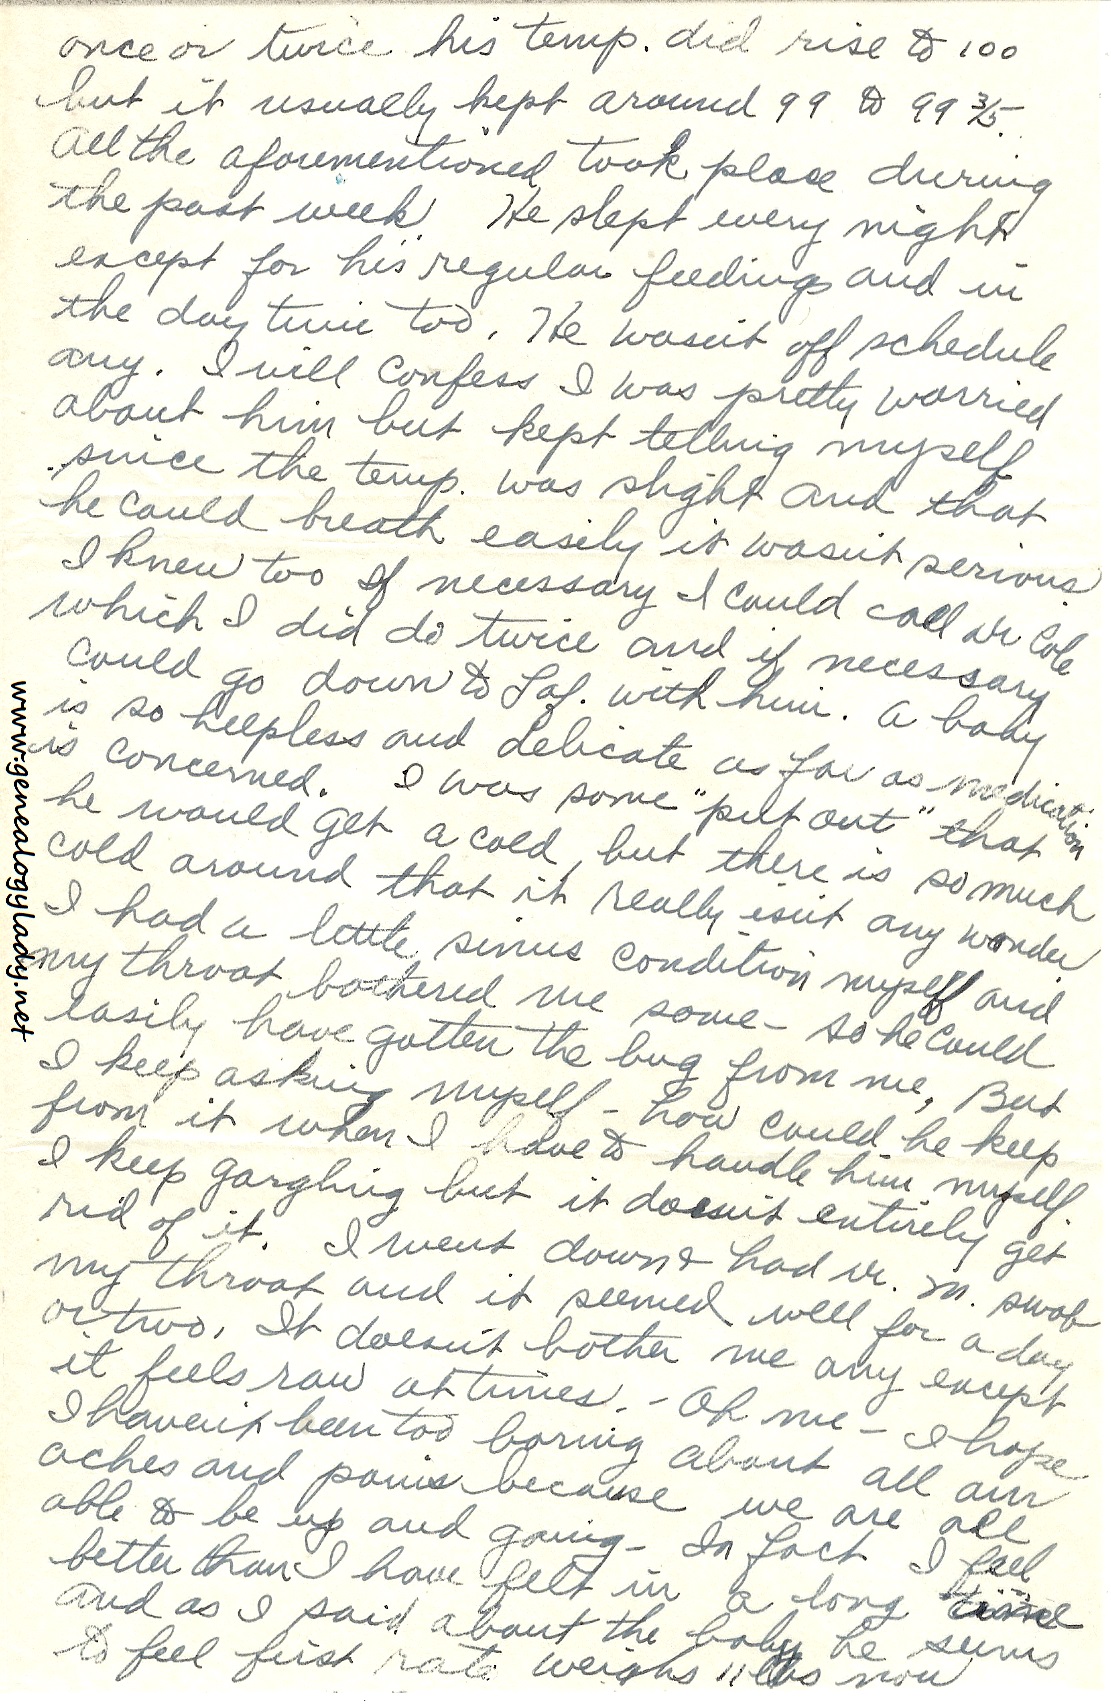 once or twice his temp. did rise to 100
but it usually kept around 99 to 99 3/5.
All the aforementioned took place during
the past week. He slept every night
except for his regular feedings and in
the day time too. He wasn't off schedule
any. I will confess I was pretty worried
about him but kept telling myself
since the temp. was slight and that
he could breath easily it wasn't serious.
I knew too if necessary I could call Dr Cole
which I did do twice and if necessary
could go down to Laf. with him. A baby
is so helpless and delicate as far as medication
is concerned. I was some "put out" that
he would get a cold, but there is so much
cold around that it really isn't any wonder
I had a little sinus condition myself and
my throat bothered me some - so he could
easily have gotten the bug from me, But
I keep asking myself - how could he keep
from it when I have to handle him myself.
I keep gargling but it doesn't entirely get
rid of it. I went down & had Dr. M. swab
my throat and it seemed well for a day
or two. It doesn't bother me any except
it feels raw at times. - Oh me - I hope
I haven't been too boring about all our
aches and pains because we are all
able to be up and going - In fact I feel
better than I have felt in a long time
and as I said about the baby he seems
to feel first rate. Weighs 11 lbs now
www.genealogylady.net